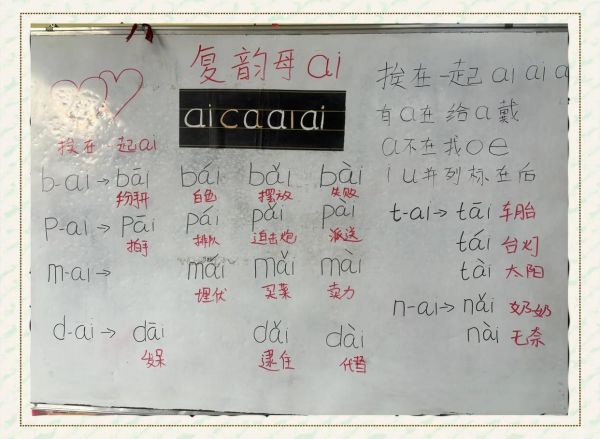 复韵母ai
ai c a ai ai
挨在一起ai
b-ai→bāi bái bǎi bài
掰开 白色 摆放 失败
p-ai→pāi pái pǎi pài
拍手 排队 迫击炮 派送
m-ai→ mái mǎi mài
埋伏 买菜 卖力
d-ai→ dāi dǎi dài
发呆 逮住 代替
挨在一起ai ai a
有a在给a戴
a不在找o e
i u并列标在后
t-ai→tāi 车胎
tái 台灯
tài 太阳
n-ai→nǎi 奶奶
nài 无奈